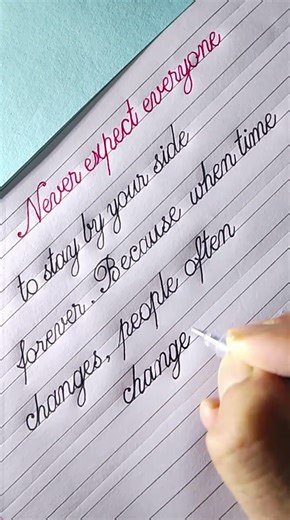 Never expect everyone
to stay by your side
forever. Because when time
changes, people often
change